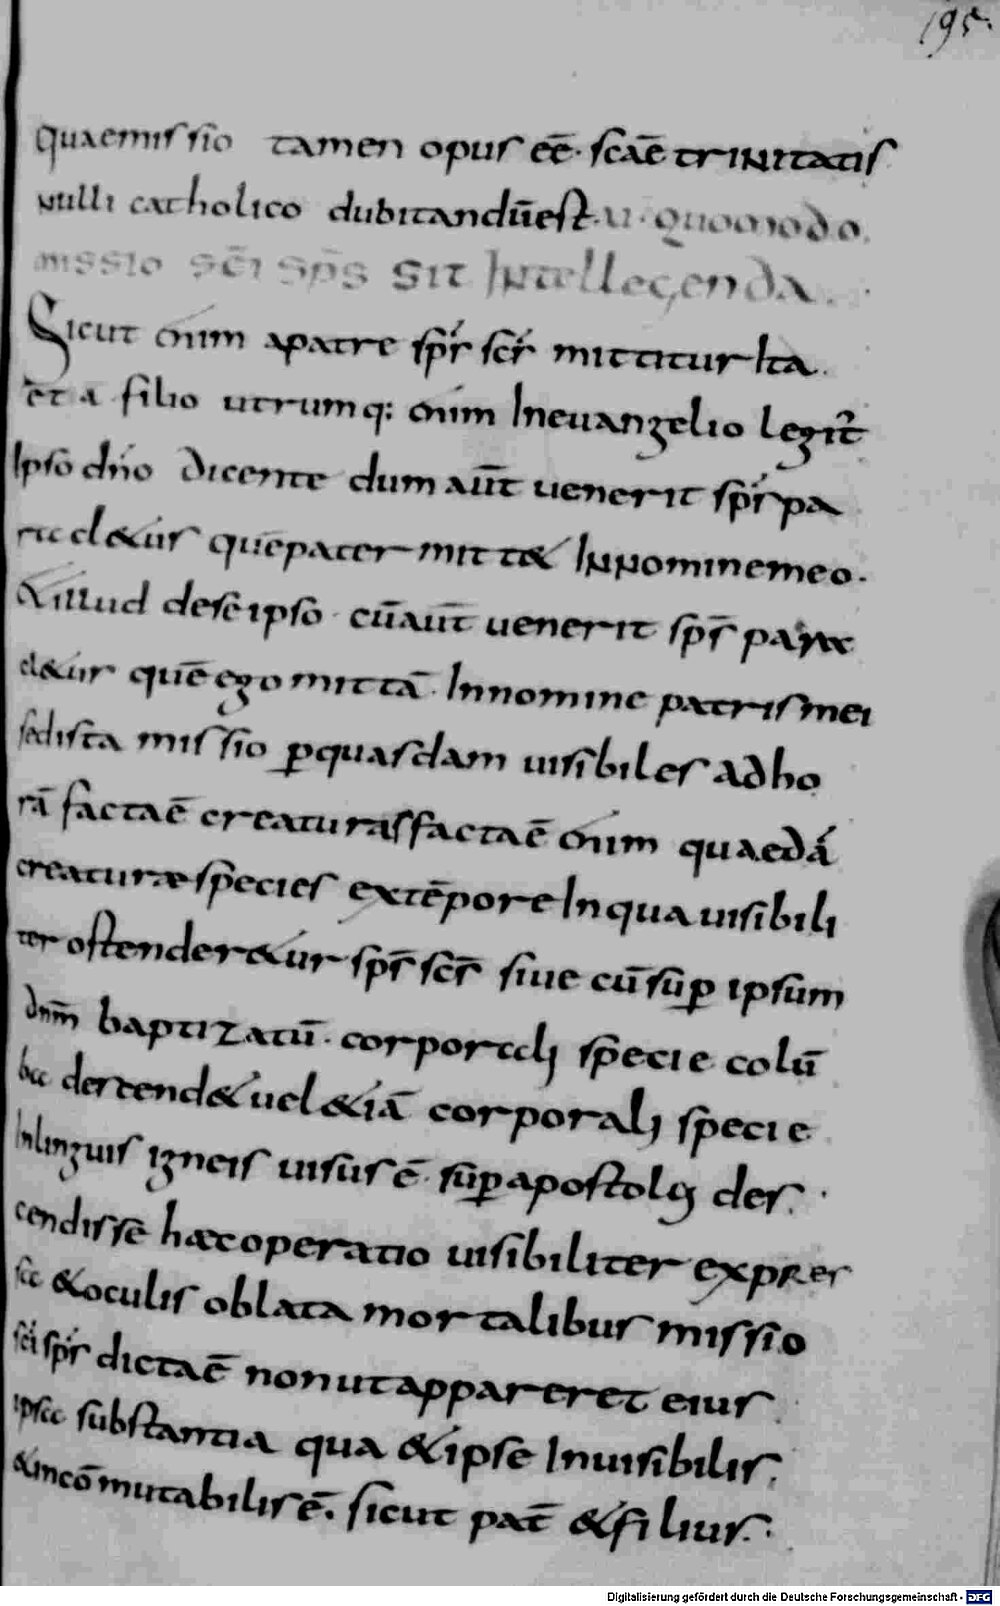 195.
quaemissio tamen opus eē. scāe trinitatis
nulli catholico dubitandūest. U. quomodo
missio sc̄i sp̄s sit Intellegenda.
Sicut enim apatre sp̄s sc̄s mittitur Ita
et a filio utrumq: enim Ineuangelio legit̄
Ipso dn̄o dicente dum aūt uenerit sp̄s pa
racl&us quēpater mitt& Innominemeo.
&illud deseipso. cūaūt uenerit sp̄s parac
l&us quēego mittā. Innomine patrismei
sedista missio p̱quasdam uisibiles adho
rā factaē creaturasfactaē enim quaedā
creaturæspecies extēpore Inqua uisibili
ter ostender&ur sp̄s sc̄s siue cūsup̱ ipsum
dnm̄ baptizatū. corporali specie colū
ba descend& uel &iā corporali specie
Inlinguis igneis uisus ē. sup̱apostolos des
cendisse hæcoperatio uisibiliter expres
sa &oculis oblata mortalibus missio
sc̄i sp̄s dictaē nonutappareret eius
ipsa substantia qua &ipse Inuisibilis
&incōmutabilis ē. sicut pat̄ &filius.
Digitalisierung gefördert durch die Deutsche Forschungsgemeinschaft - DFG